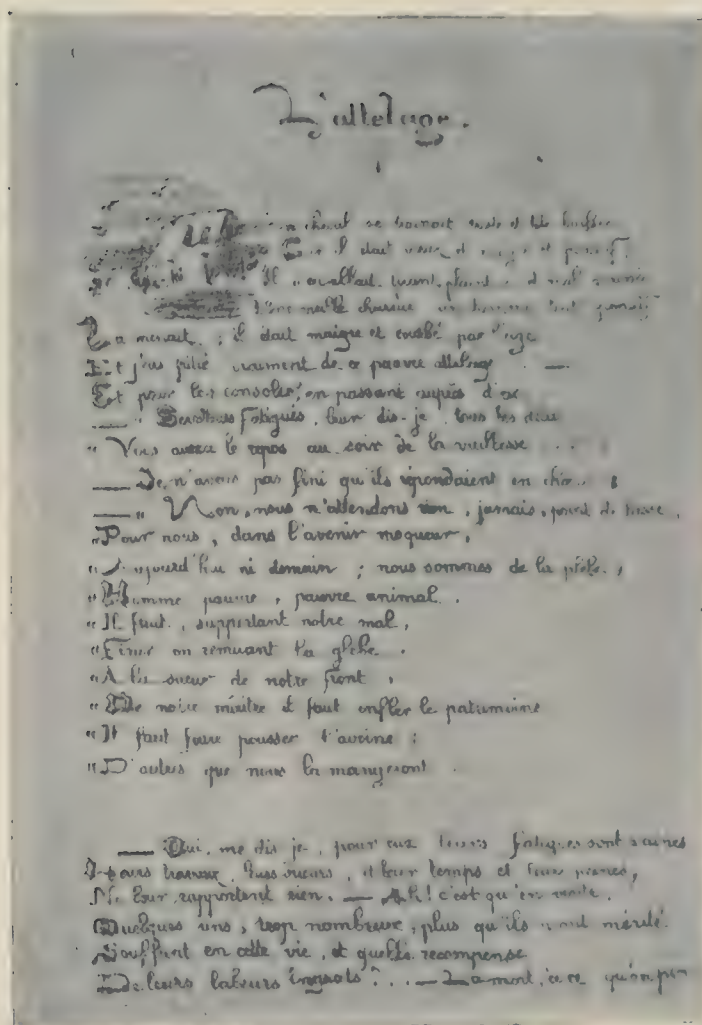 L'attelage.
cheval se trainait et tête
il était
Il travaillait
chassieux un homme tout
La menait ; il était maigre et courbé par l'age
Et j'eus pitié vraiment de ce pauvre attelage . —
Et pour les consoler, en passant auprès d'eux
— " fatigués, leur dis-je, tous les deux
" Vous aurez le repos au soir de la vieillesse . . .
— Je n'avais pas fini qu'ils répondaient en chœur :
— " Non, nous n'attendons rien, jamais, point de
" Pour nous, dans l'avenir moqueur,
" Aujourd'hui ni demain ; nous sommes de la plèbe,
" Homme pauvre, pauvre animal.
" Il faut, supportant notre mal,
" Finir en remuant la glèbe.
" A la sueur de notre front,
" De notre maître il faut enfler le patrimoine
" Il faut faire pousser l'avoine :
" D'autres que nous la mangeront.
— Oui, me dis je, pour eux leurs fatigues sont vaines
travaux, sueurs, et leur temps et leurs peines,
Ne leur rapportent rien. — Ah! c'est qu'en
Quelques uns, trop nombreux, plus qu'ils n'ont mérité.
Souffrent en cette vie, et quelle recompense
De leurs labeurs ingrats ? . . . — La mort, ce